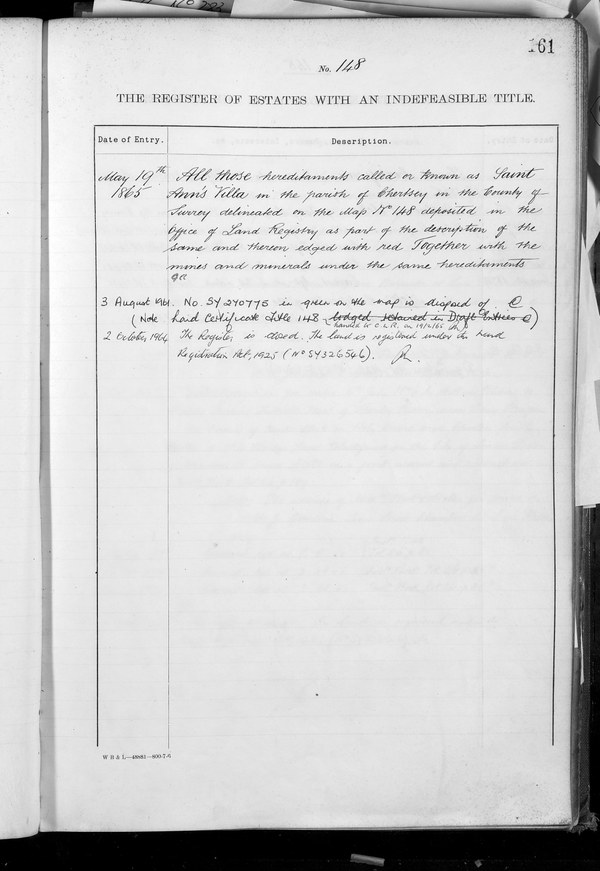 161
No. 148
THE REGISTER OF ESTATES WITH AN INDEFEASIBLE TITLE.
Date of Entry. Description.
May 19th All those hereditaments called or known as Saint
1865 Ann's Villa in the parish of Chertsey in the County of
Surrey delineated on the Map No 148 deposited in the
Office of Land Registry as part of the description of the
same and thereon edged with red Together with the
mines and minerals under the same hereditaments
3 August 1961. No. SY 270775 in green on the map is disposed of.
(Note Land Certificate title 148 lodged retained in Draft Entries)
handed to C.L.R. on
2 October 1964 The Register is closed. The land is registered under the Land
Registration Act, 1925 (No SY326546).
W B & L—49881—800-7-6